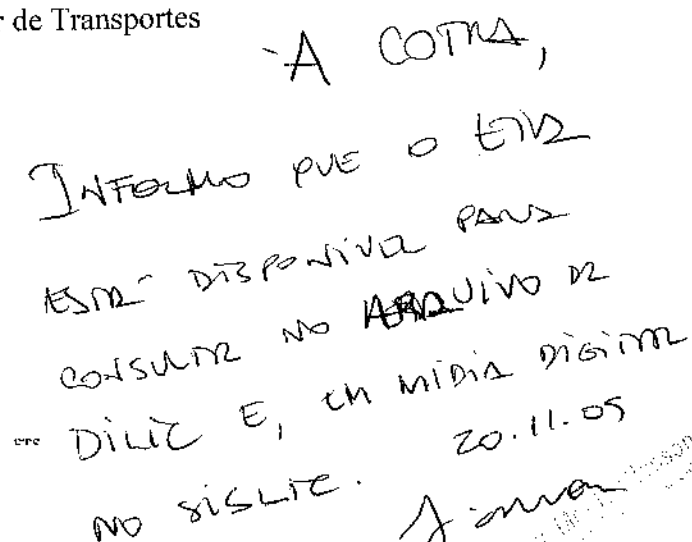 de Transportes
À COTRA,
INFORMO QUE O EIA
ESTÁ DISPONÍVEL PARA
CONSULTA NO ARQUIVO DA
DILIC E, EM MÍDIA DIGITAL
NO SISLIC. 20.11.05